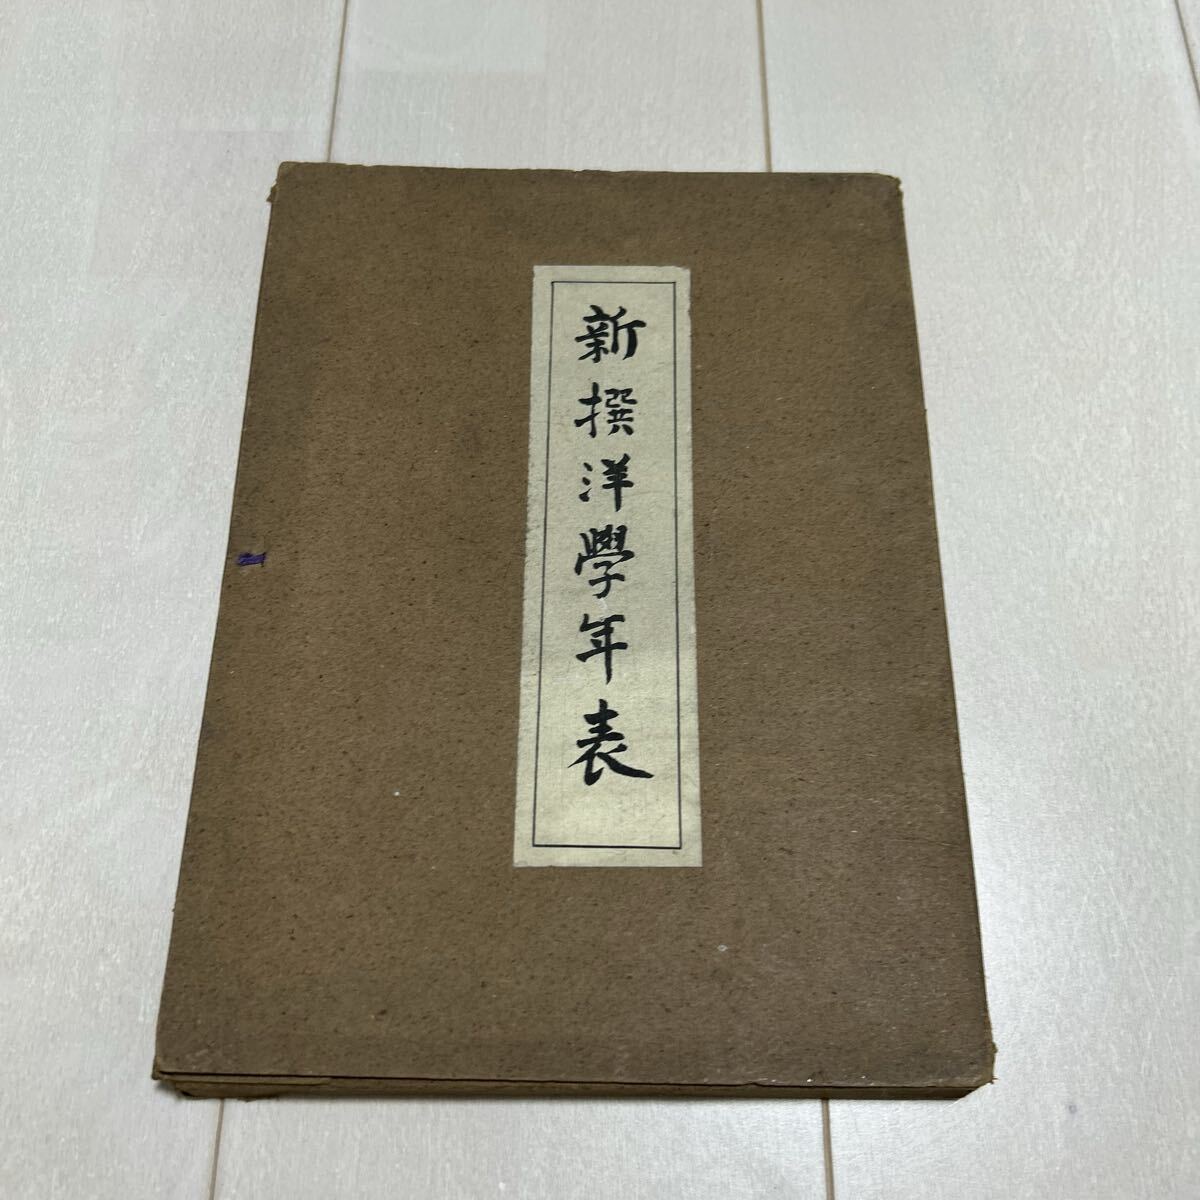 新撰洋學年表